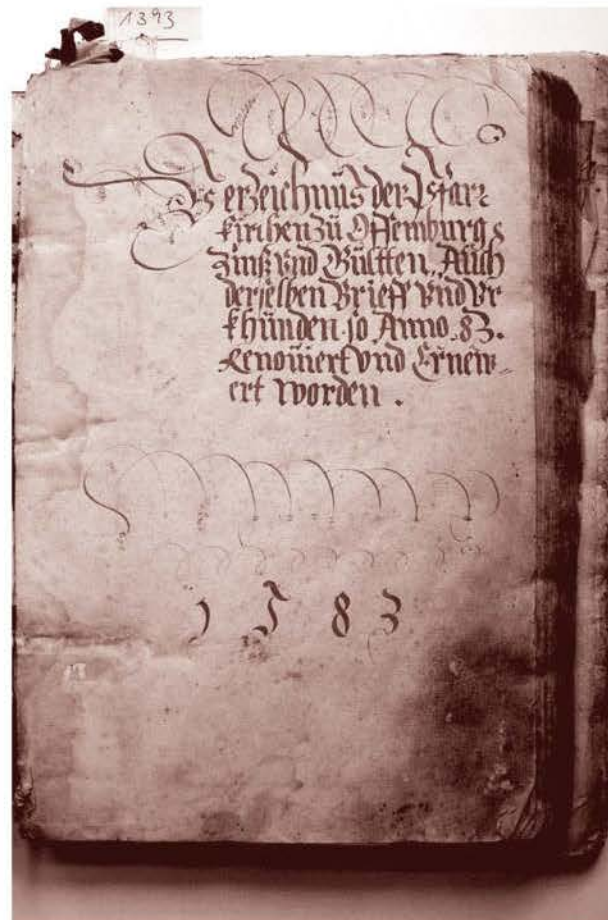 1393
Verzeichnüs der Pfar-
kirchen zů Offemburg,
Zinß vnd Gültten, Auch
derselben Brieff vnd Vr
khünden, so Anno. 83.
Renouiert vnd Ernew-
ert worden .
1583